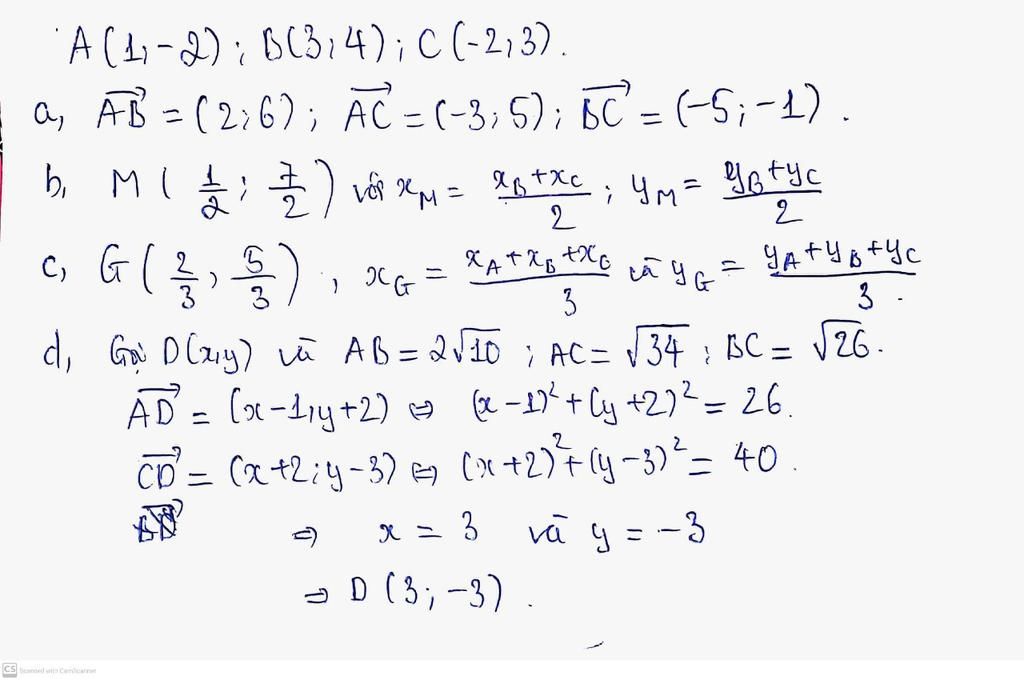 A(1;-2); B(3;4); C(-2;3).
a, $\overrightarrow{AB}$ = (2;6); $\overrightarrow{AC}$ = (-3;5); $\overrightarrow{BC}$ = (-5;-1).
b, M($\frac{1}{2}$; $\frac{7}{2}$) với $x_M = \frac{x_B+x_C}{2}$; $y_M = \frac{y_B+y_C}{2}$
c, G($\frac{2}{3}$, $\frac{5}{3}$), $x_G = \frac{x_A+x_B+x_C}{3}$ và $y_G = \frac{y_A+y_B+y_C}{3}$.
d, Gọi D(x,y) và AB = 2√10; AC = √34; BC = √26.
$\overrightarrow{AD}$ = (x-1,y+2) ⇔ (x-1)² + (y+2)² = 26.
$\overrightarrow{CD}$ = (x+2;y-3) ⇔ (x+2)² + (y-3)² = 40.
⇒ x = 3 và y = -3
⇒ D(3;-3).
CS Scanned with CamScanner